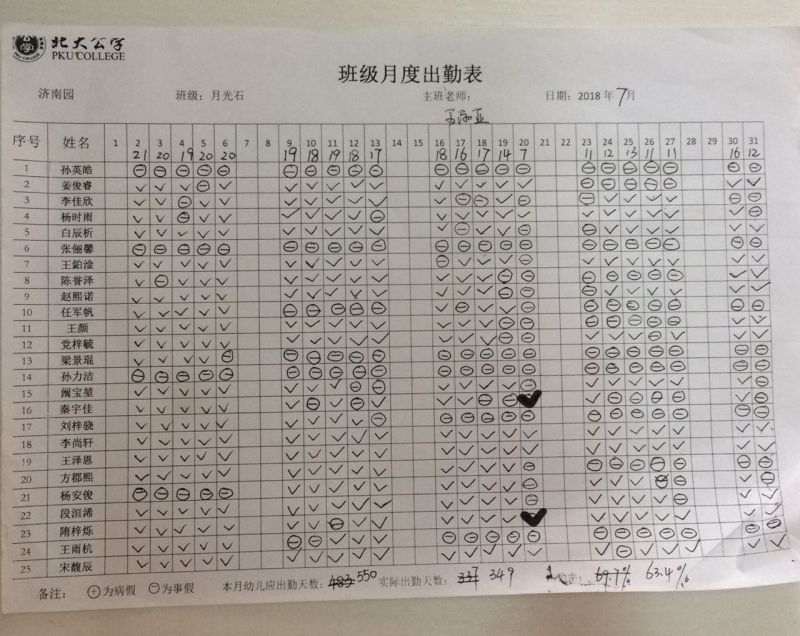 北大公学
PKU COLLEGE
班级月度出勤表
济南园 班级：月光石 主班老师： 日期：2018 年 7月
序号 姓名 1 2 3 4 5 6 7 8 9 10 11 12 13 14 15 16 17 18 19 20 21 22 23 24 25 26 27 28 29 30 31
21 20 19 20 20 19 18 19 18 17 18 16 17 14 7 11 12 13 11 11 16 12
1 孙英皓
2 姜俊睿
3 李佳欣
4 杨时雨
5 白辰析
6 张俪馨
7 王鉑淦
8 陈誉泽
9 赵熙诺
10 任军帆
11 王颜
12 党梓毓
13 梁景琨
14 孙力洁
15 阚宝堃
16 秦宇佳
17 刘梓骁
18 李尚轩
19 王泽恩
20 方郡熙
21 杨安俊
22 段洹浠
23 隋梓烁
24 王雨杭
25 宋馥辰
备注： ⊕为病假 ⊖为事假 本月幼儿应出勤天数：483 550 实际出勤天数：337 349 69.7% 63.4%